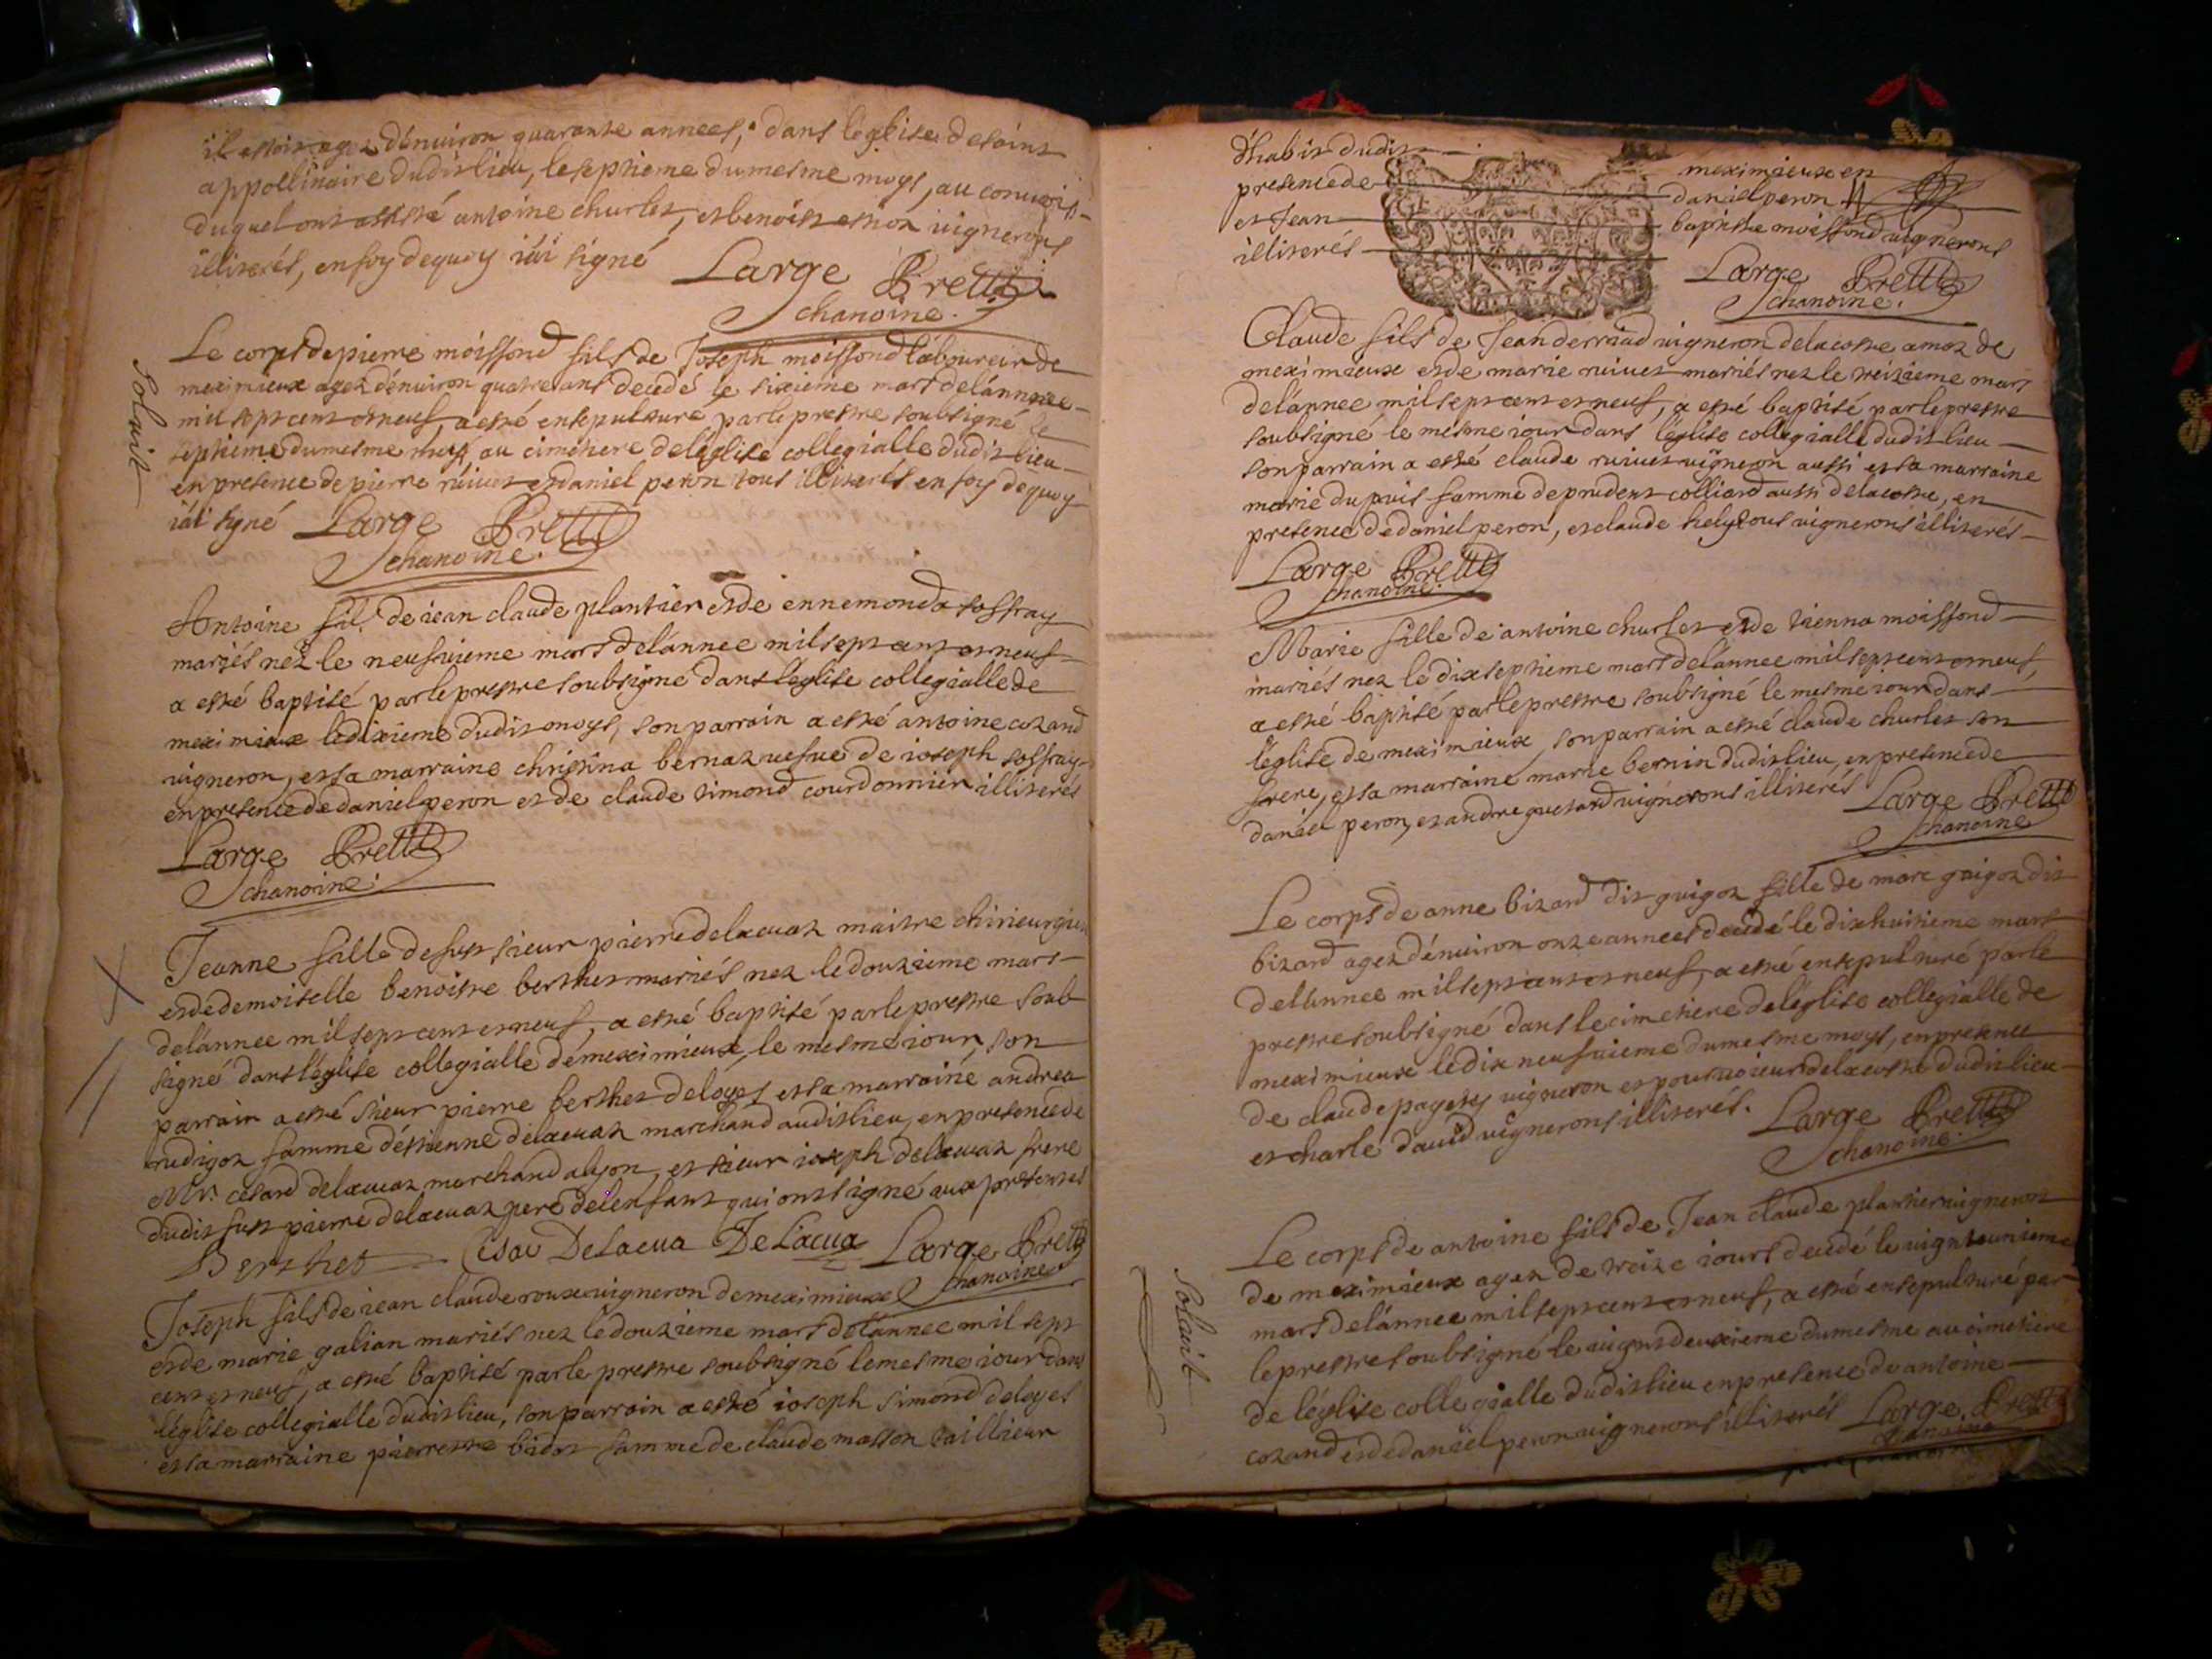 il estoit agez dénuiron quarante annees, dans léglise de saint
appollinaire dudit lieu, le septieme du mesme moys, au conuoit
duquel ont assisté antoine churlet, et benoist vignerons
illiterés, en foy dequoy iái signé Large Prettre
chanoine.
Le corps de pierre moissond fils de Joseph moissond láboureur de
meximieux agez dénuiron quatre ans decedé le sixieme mars delánnee
mil sept cent et neuf, a esté ensepulturé par le prestre soubsigné le
septieme du mesme moys au cimetiere de léglise collegialle dudit lieu
en presence de pierre riuiet et daniel peron tous illiterés en foy dequoy
iái signé Large Prettre
chanoine.
Solait
Antoine fils de iean claude plantier et de ennemonda soffray
mariés nez le neufuieme mars delánnee mil sept cent et neuf
a esté baptisé par le prestre soubsigné dans léglise collegialle de
meximieux le dixieme dudit moys, son parrain a esté antoine cozand
vigneron, et sa marraine christina bernaz uefue de ioseph soffray
en presence de daniel peron et de claude simond courdonnier illiterés
Large Prettre
chanoine.
Jeanne fille de fust sieur pierre delacuaz maitre chirieurgien
et de demoiselle benoitte berthet mariés nez le douzieme mars
delánnee mil sept cent et neuf, a esté baptisé par le prestre soub
signé dans léglise collegialle démeximieux, le mesme iour, son
parrain a esté sieur pierre berthet de loyes et sa marrainé andrea
rudigoz famme détienne delacuaz marchand audit lieu, en presence de
Mr. césard delacuaz marchand a lyon, et sieur ioseph delacuaz frere
dudit fust pierre delacuaz pere delenfant qui ont signé aux presentes
Berthet Cesar DeLacua DeLacua Large Prettre
chanoine
Joseph fils de iean claude roux vigneron de meximieux
et de marie galian mariés nez le douzieme mars delánnee mil sept
cent et neuf, a esté baptisé par le prestre soubsigné le mesme iour dans
léglise collegialle dudit lieu, son parrain a esté ioseph simond de loyes
et sa marraine pierrette bidot famme de claude masson taillieur
d'habit dudit meximieux en
presence de daniel peron
et Jean baptiste moissond vignerons
illiterés Large Prettre
chanoine.
Claude fils de Jean derriad vigneron delacoste amoz de
meximieux et de marie riuiet mariés nez le treizieme mars
delánnee mil sept cent et neuf, a esté baptisé par le prestre
soubsigné le mesme iour dans léglise collegialle dudit lieu
son parrain a esté claude riuiet vigneron aussi et sa marraine
marie dupuis famme de prudent colliard aussi delacoste, en
presence de daniel peron, et claude hely tous vignerons illiterés
Large Prettre
chanoine.
Marie fille de antoine churlet et de tienna moissond
mariés nez le dix septieme mars delánnee mil sept cent et neuf,
a esté baptisé par le prestre soubsigné le mesme iour dans
léglise de meximieux, son parrain a esté claude churlet son
frere, et sa marraine marie bernin dudit lieu, en presence de
daniel peron, et andre guetard vignerons illiterés Large Prettre
chanoine
Le corps de anne bizard dit guigoz fille de marc guigoz dit
bizard agez dénuiron onze annees decedé le dixhuitieme mars
delánnee mil sept cent et neuf, a esté ensepulturé par le
prestre soubsigné dans le cimetiere deléglise collegialle de
meximieux le dix neufuieme du mesme moys, en presence
de claude pagetes vigneron et pouruoieur delacoste dudit lieu
et charle dauid vignerons illiterés. Large Prettre
chanoine.
Le corps de antoine fils de Jean claude plantier vigneron
de meximieux agez de treize iours decedé le vignt eunieme
mars delánnee mil sept cent et neuf, a esté ensepulturé par
le prestre soubsigné le vignt deuxieme du mesme au cimetiere
de léglise collegialle dudit lieu en presence de antoine
cozand et de daniel peron vignerons illiterés Large Prettre
chanoine
Solait